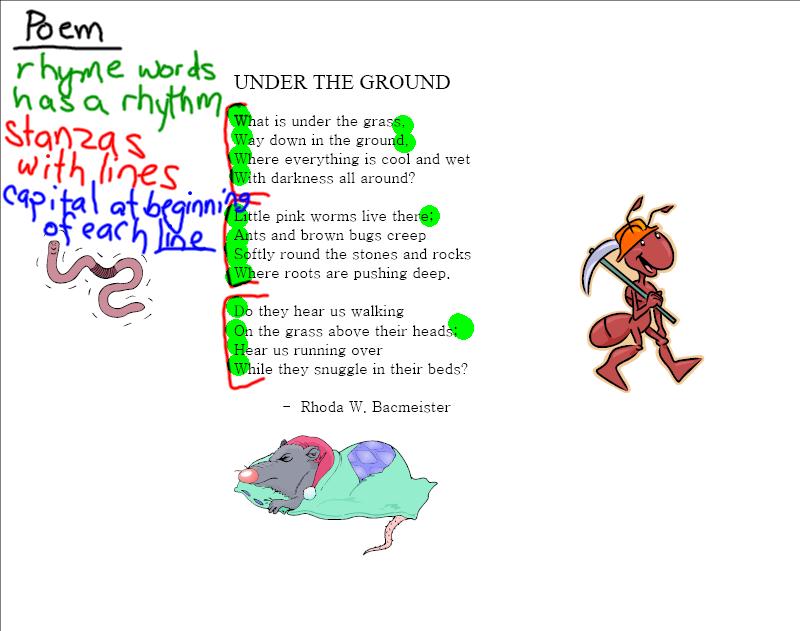 Poem
rhyme words
has a rhythm
stanzas
with lines
capital at beginning
of each line
UNDER THE GROUND
What is under the grass,
Way down in the ground,
Where everything is cool and wet
With darkness all around?
Little pink worms live there;
Ants and brown bugs creep
Softly round the stones and rocks
Where roots are pushing deep.
Do they hear us walking
On the grass above their heads;
Hear us running over
While they snuggle in their beds?
- Rhoda W. Bacmeister